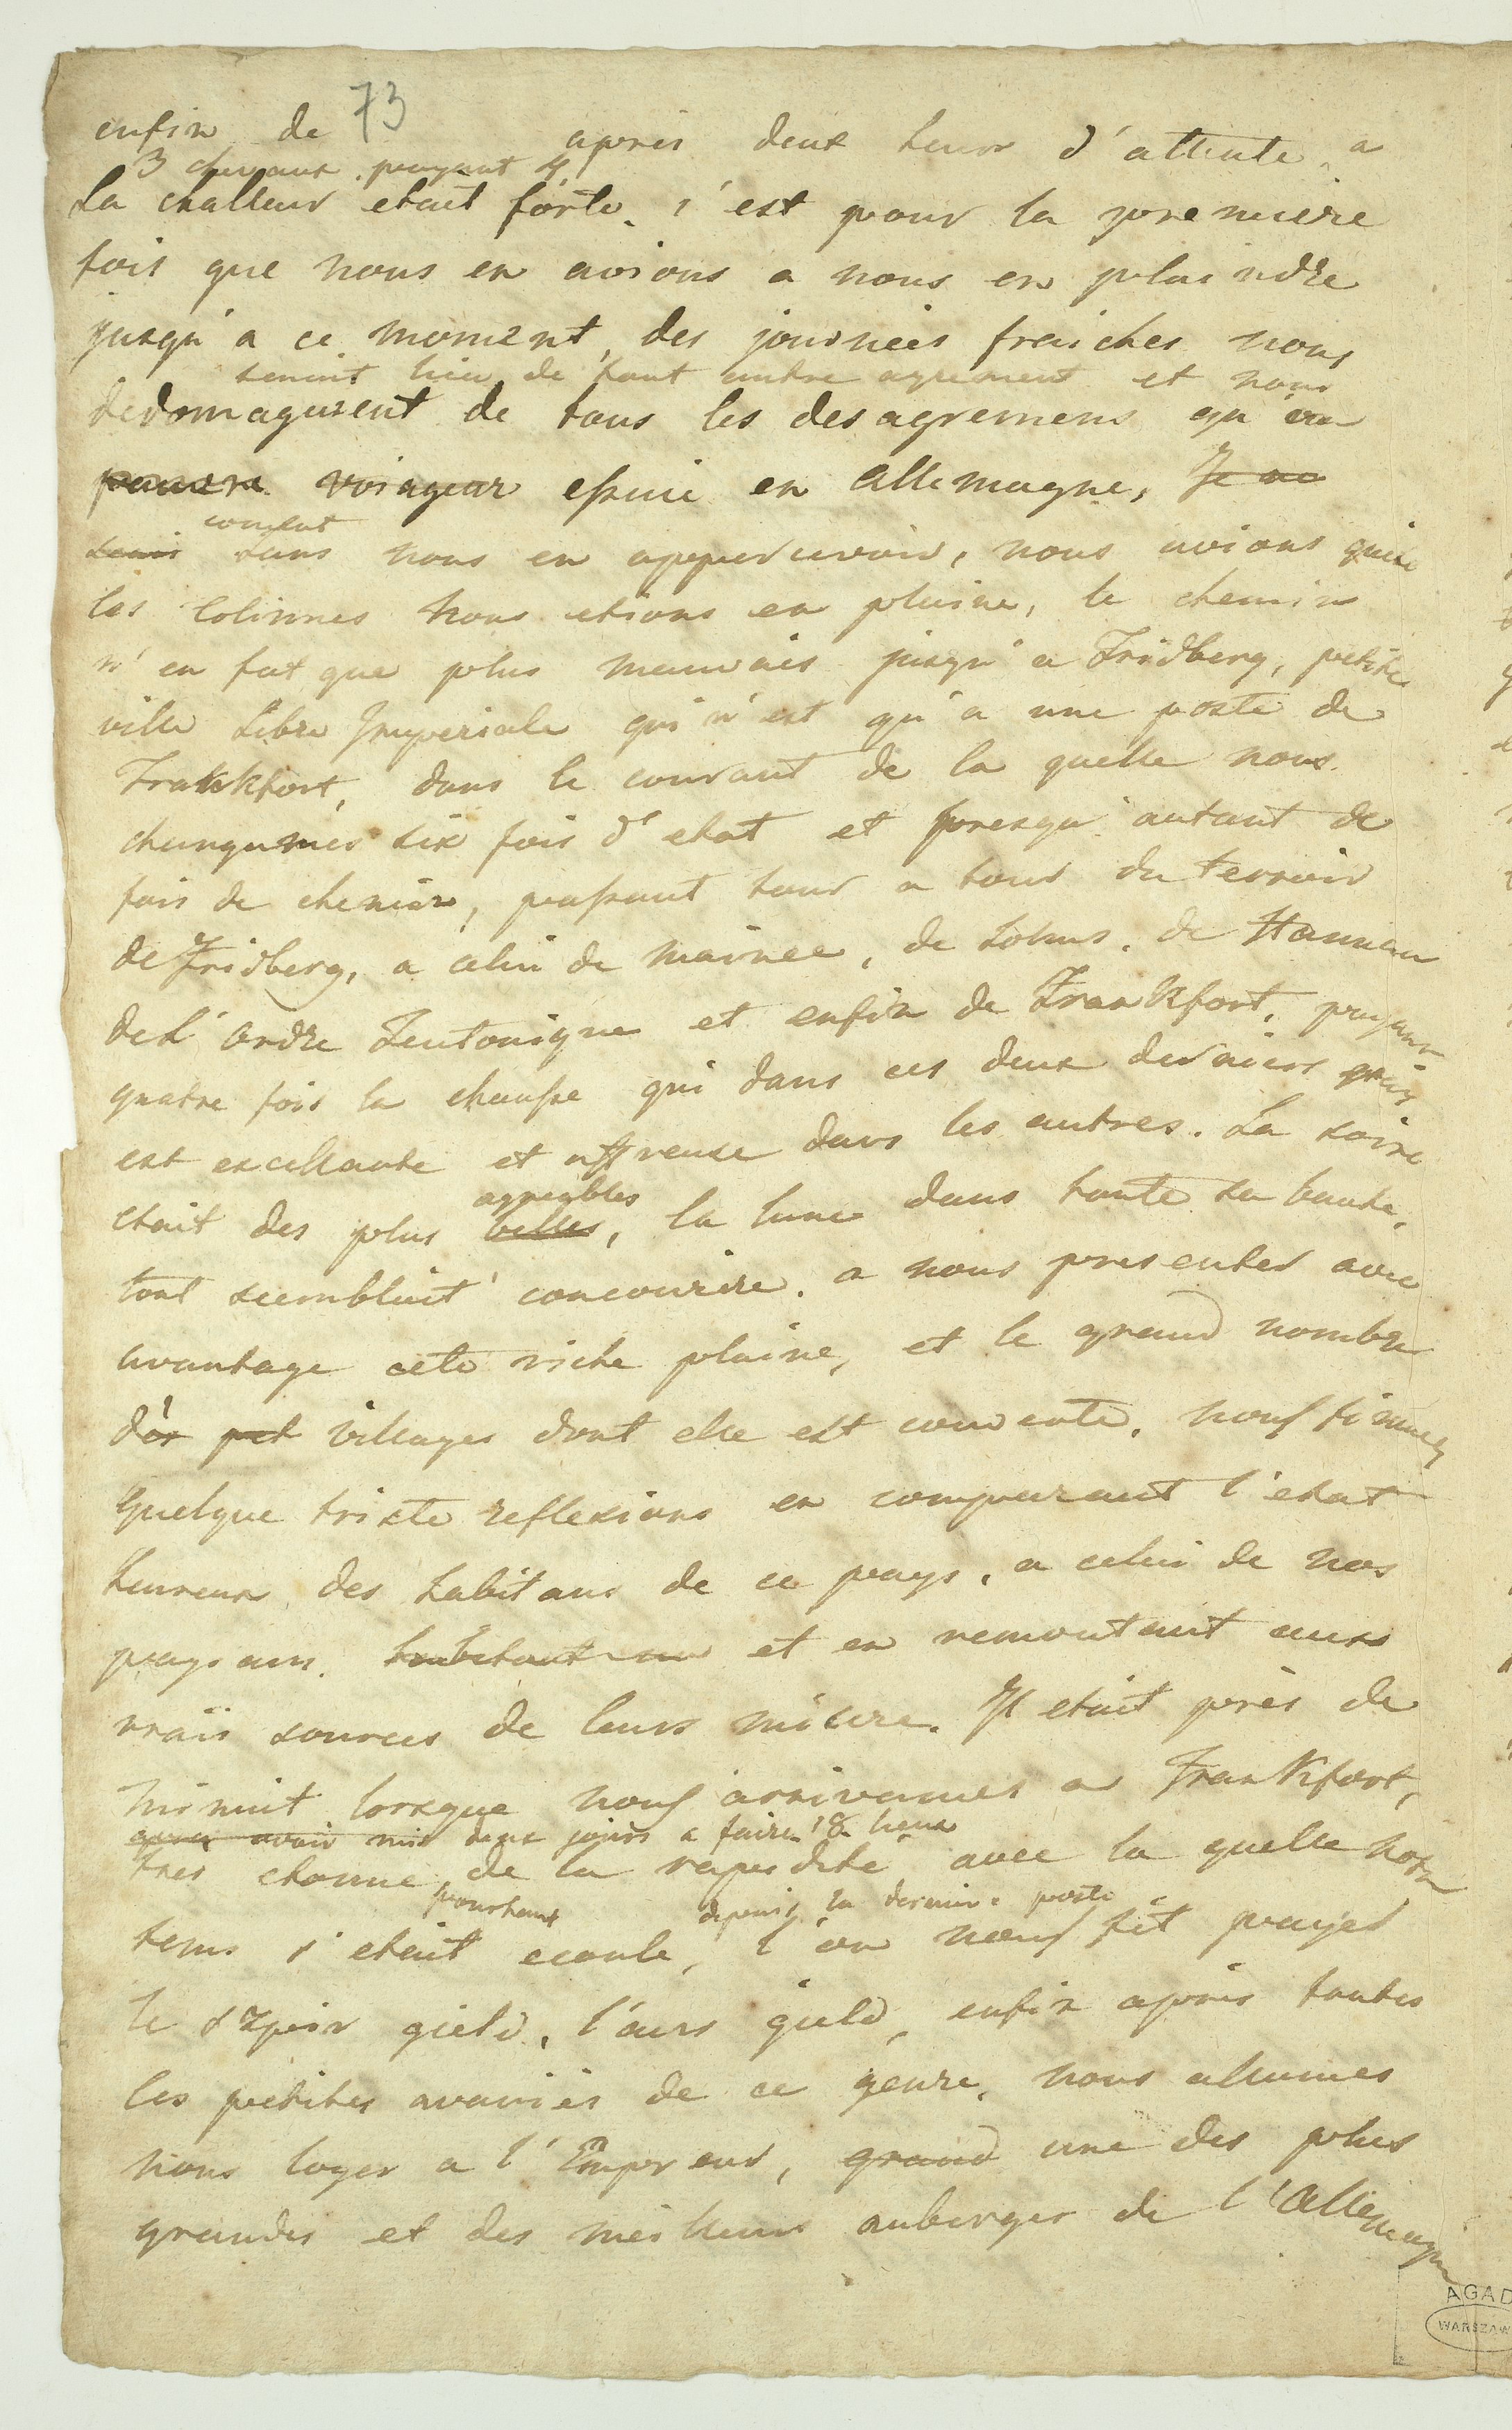 73
enfin de après deux heur d'attente a
3 chevaux payant 4
La challeur etait forte. c'est pour la premiere
fois que nous en avions a nous en plaindre
jusqu'a ce moment, des journeés fraiches nous
tenoint lieu de tout autre agrement et nous
dedomagerent de tous les desagremens qu'un
pauvre voiageur essuie en Allemagne, Je ne
content
sans nous en appercevoir, nous avions quité
les Colinnes nous etions en plaine, le chemin
n'en fut que plus mauvais jusqu'a Fridberg, petite
ville Libre Imperiale qui n'est qu'a une poste de
Frankfort, dans le courant de la quelle nous
changames six fois d'etat et presqu'autant de
fois de chemin, passant tour a tour du terroir
de Fridberg, a celui de Mainee, de Solms, de Hannau
de L'Ordre Teutonique et enfin de Frankfort, payant
quatre fois la chausse qui dans ces deux derniers pais
est excellante et affreuse dans les autres. La soire
agreables
etait des plus belles, la lune dans toute sa beaute,
tout scemblait concourire a nous presenter avec
avantage cete riche plaine, et le grand nombre
d'or pet villages dont elle est couverte. nous fimmes
quelque triste reflexions en comparant l'etat
heureux des habitans de ce pays, a celui de nos
paysans. et en remontant aux
vraïs sources de leurs misere. Il etait près de
minuit lorsque nous arrivames a Frankfort,
apres avoir mis deux jours a faire 18 lieux
tres etonne de la rapidité avec la quelle notre
pourtant depuis la derniere poste
tems s'etait ecoule, l'on nous fit payer
le gield, l'aurs gield, enfin apres toutes
les petites avaniés de ce genre, nous allames
nous loger a l'Empereur, grand une des plus
grandes et des meilleurs auberges de l'Allemagne
AGAD
WARSZAW